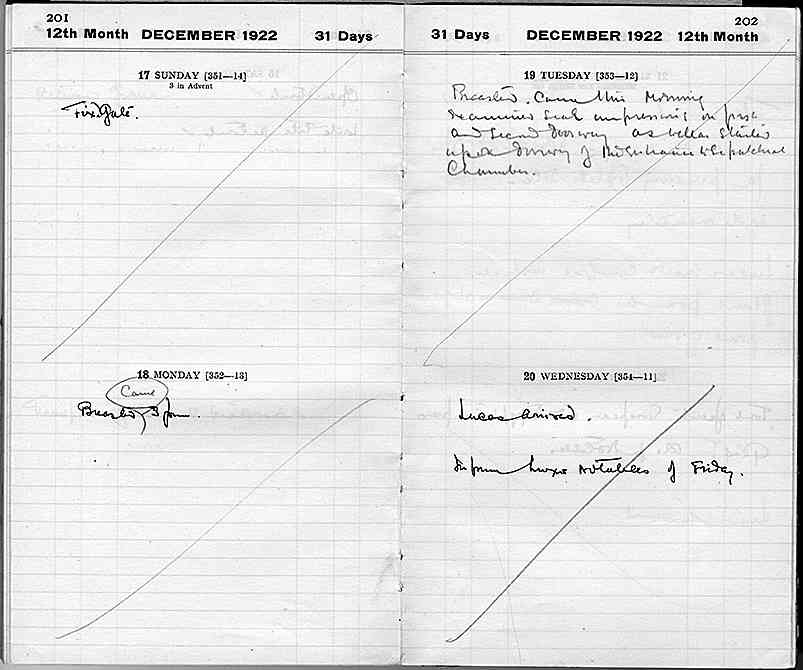 201
12th Month DECEMBER 1922 31 Days
17 SUNDAY [351—14]
3 in Advent
Fix Gate.
18 MONDAY [352—13]
Came
Breasted 3 pm.
202
31 Days DECEMBER 1922 12th Month
19 TUESDAY [353—12]
Breasted. Came this morning
examined seal impressions on first
and second doorway as well as
upon doorway of the Entrance to Sepulchral
Chamber.
20 WEDNESDAY [354—11]
Lucas arrived.
Inform Luxor Notables of Friday.